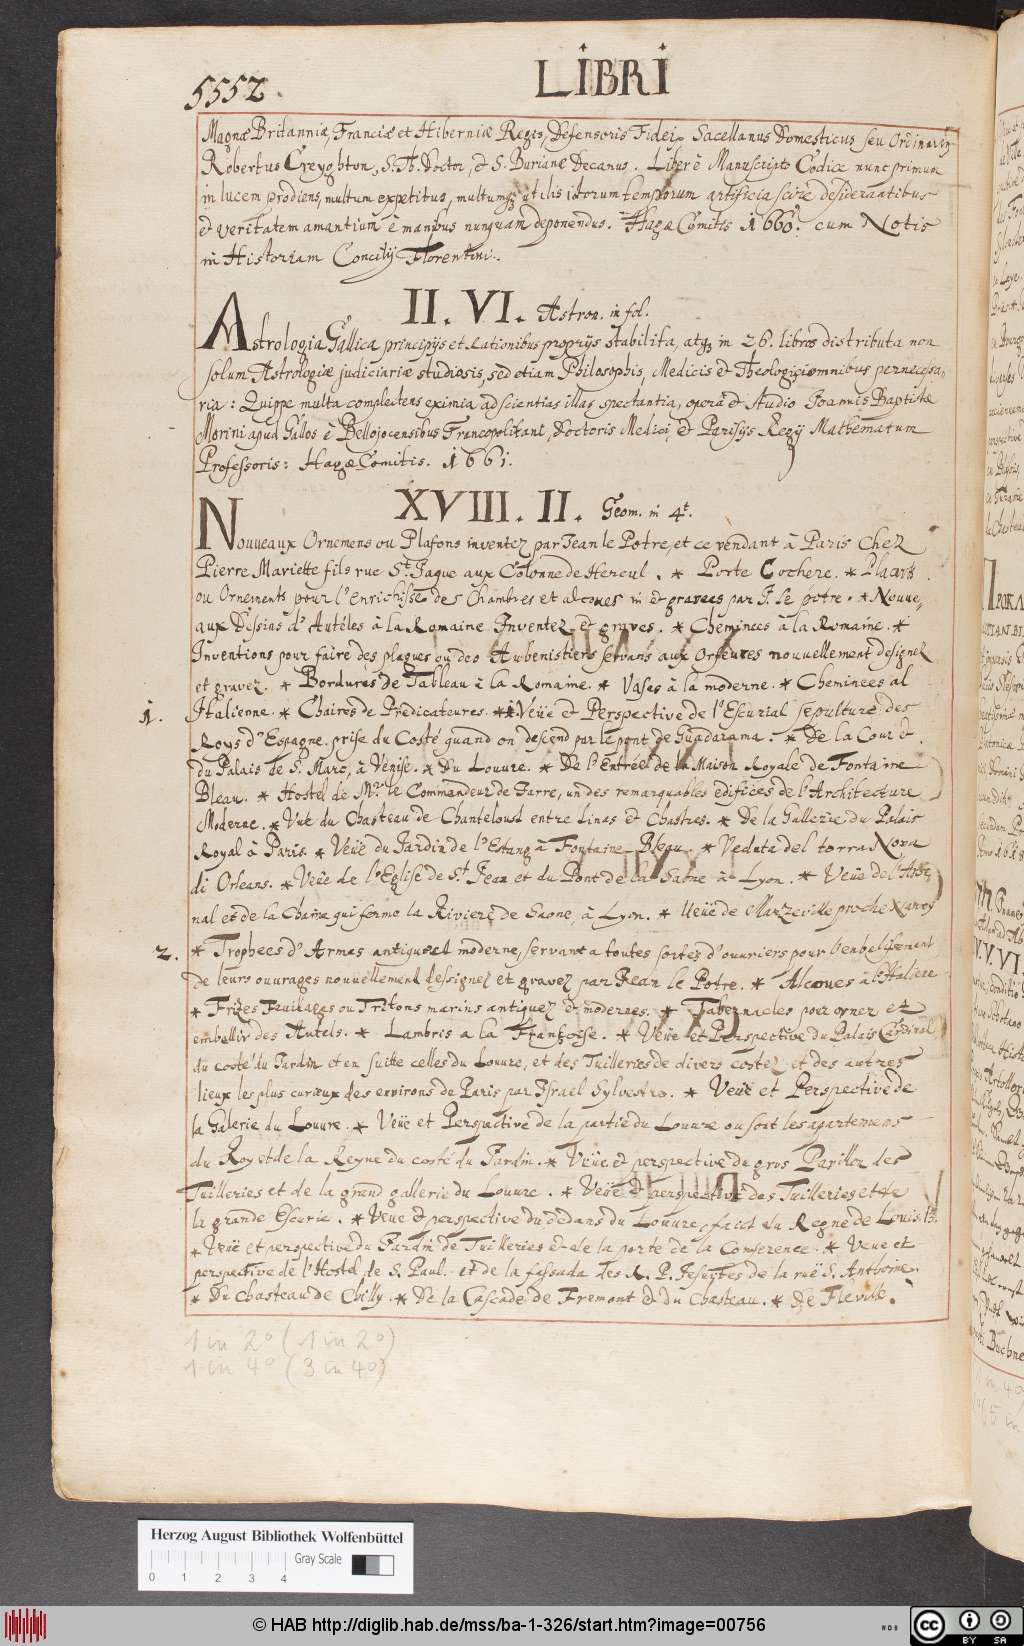 5552.
LIBRI
Magnæ Britanniæ, Franciæ et Hiberniæ Regis, Defensoris Fidej. Sacellanus Domesticus seu Ordinariꝯ
Robertus Creyghton, S. Th. Doctor, & S. Burianæ Decanus. Liber è Manuscripto Codice nunc primum
in lucem prodiens, multum expetitus, multumqꝫ utilis istorum temporum artificia scire desiderantibus
et veritatem amantium è manibus nunquam deponendus. Hagæ Comitis 1660. cum Notis
in Historiam Concilij Florentini.
II. VI. Astron. in fol.
Astrologia Gallica principijs et Rationibus proprijs stabilita, atqꝫ in 26. libros distributa non
solum Astrologiæ judiciariæ studiosis, sed etiam Philosophis, Medicis et Theologis omnibus pernecessa-
ria: Quippe multa complectens eximia ad scientias illas spectantia, operâ & studio Joannis Baptistæ
Morini apud Gallos è Bellojocensibus Francopolitani, Doctoris Medici, & Parisijs Regij Mathematum
Professoris: Hagæ Comitis. 1661.
XVIII. II. Geom. in 4t.
Nouueaux Ornemens ou Plafons inventez par Jean le Potre, et ce vendant à Paris Chez
Pierre Mariette fils rue St. Jaque aux Colonne de Hercul. * Porte Cochere. *
ou Ornements pour l'enrichisse des Chambres et alcoues in et gravees par J. le potre. * Nouue,
aux Dessias d'Autéles à la Romaine Inventez et graves. * Cheminees à la Romaine. *
Inventions pour faire des plaques ou des Aubenistiers servans aux Orfeures nouuellement designez
et gravez. * Bordures de Tableau à la Romaine. * Vases à la moderne. * Cheminees al
1. Italienne. * Chaires de Predicateures. * Veüe & Perspective de l'Escurial sepulture des
Roys d'Espagne. prise du Costé quand on descend par le pont de Guadarama. * De la Cour &
du Palais de S. Marc, à Venise. * Du Louure. * De l'Entreé de la Maison Royale de Fontaine
Bleau. * Hostel de Mr. le Commandeur de Jarre, un des remarquables edifices de l'Architecture
Moderne. * Vue du Chasteau de Chanteloud entre Linas & Chastres. * De la Gallerie du Palais
Royal à Paris. * Veüe du Jardin de l'Estang à Fontaine Bleau. * Veduta del torra Nova
di Orleans. * Veüe de l'Eglise de St. Jean et du Pont de la Saône à Lyon. * Veüe de l'Arse,
nal et de la Chaîne qui ferme la Riviere de Saone, à Lyon. * Veüe de Marzeville proche Nancy
2. * Trophees d'Armas antiques et moderne, servant a toutes sortes d'ouuriers pour l'enbelisement
de leurs ouurages nouuellement dessignez et gravez par Jean le Potre. * Alcoues à l'Italiene
* Frizes Feuilages ou Tritons marins antiquez & modernes. * Tabernacles poer orner et
embellir des Autels. * Lambris a la Françoise. * Veüe et Perspective du Palais Cardinal
du costé du Jardin et en suitte celles du Louure, et des Tuilleries de divers costez et des autres
lieux les plus curieux des environs de Paris par Israel Sylvestre. * Veüe et Perspective de
la Galerie du Louure. * Veüe et Perspective de la partie du Louure ou sont les apartemens
du Roy et de la Reyne du costé du Jardin. * Veüe & perspective du gros Pavillon des
Tuilleries et de la grand gallerie du Louure. * Veüe & perspective des Tuilleries et de
la grande Escurie. * Veue & perspective du dedans du Louure, faict du Regne de Louis 13.
* Veüe et perspective du Jardin de Tuilleries & de la porte de la Conference. * Veue et
perspective de l'Hostel de S. Paul. et de la fassada des R. P. Jesuytes de la ruë S. Anthoine.
* Du Chasteau de Chilly. * De la Cascade de Fremont & du Chasteau. * De Fleville.
1 in 2° (1 in 2°)
1 in 4° (3 in 4°)
Herzog August Bibliothek Wolfenbüttel
Gray Scale
0 1 2 3 4
© HAB http://diglib.hab.de/mss/ba-1-326/start.htm?image=00756
WDB
CC BY SA